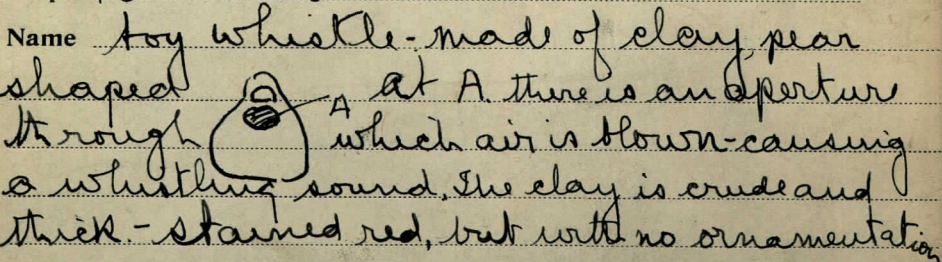 Name toy whistle - made of clay, pear
shaped At A. there is an aperture
A
through which air is blown - causing
a whistling sound. The clay is crude and
thick. - stained red, but with no ornamentation